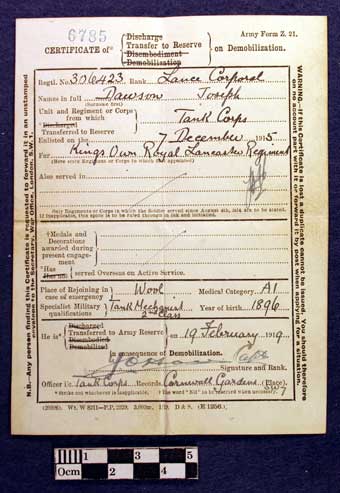 6785
Army Form Z. 21.
CERTIFICATE of* Discharge
Transfer to Reserve
Disembodiment
Demobilization
on Demobilization.
Regtl. No. 306423 Rank Lance Corporal
Names in full Dawson Joseph
(Surname first)
Unit and Regiment or Corps
from which Tank Corps
*Discharged
Transferred to Reserve
Enlisted on the 7 December 1915
For Kings Own Royal Lancaster Regiment
(Here state Regiment or Corps to which first appointed)
Also served in
Only Regiments or Corps in which the Soldier served since August 4th, 1914 are to be stated.
If inapplicable, this space is to be ruled through in ink and initialled.
†Medals and
Decorations
awarded during
present engage-
ment
*Has
Has not served Overseas on Active Service.
Place of Rejoining in
case of emergency Wool Medical Category A1
Specialist Military
qualifications Tank Mechanist 2nd Class Year of birth 1896
He is* Discharged
Transferred to Army Reserve
Disembodied
Demobilized
on 19 February 1919
in consequence of Demobilization.
Capt
Signature and Rank.
Officer i/c Tank Corps Records. Cornwall Gardens (Place).
SW7
*Strike out whichever is inapplicable. †The word "Nil" to be inserted when necessary.
WARNING.—If this Certificate is lost a duplicate cannot be issued. You should therefore
on no account part with it or forward it by post when applying for a situation.
N.B.—Any person finding this Certificate is requested to forward it in an unstamped
envelope to the Secretary, War Office, London, S.W. 1.
0cm 1 2 3 4 5